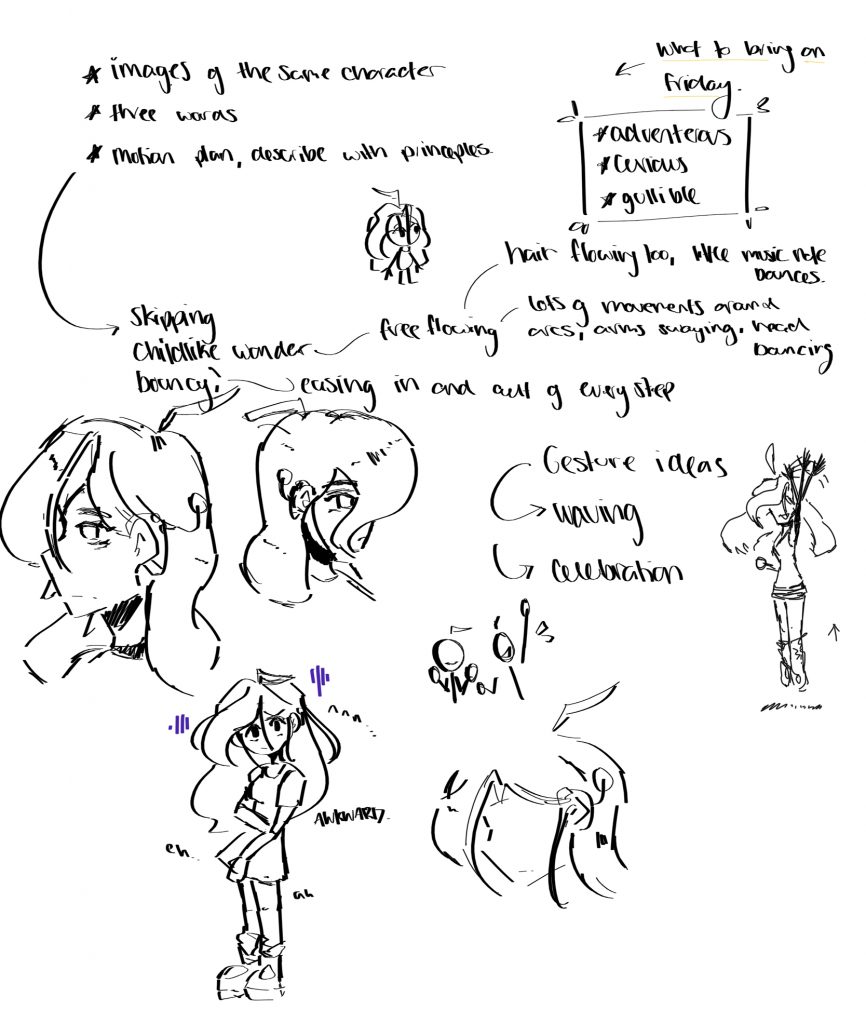 * images of the same character
* three words
* motion plan, describe with princeples.
what to bring on
Friday.
* adventerous
* Curious
* gullible
hair flowing too, little music note
bounces.
skipping
childlike wonder
bouncy?
free flowing
lots of movements around
arcs, arms swaying, head
bouncing
easing in and out of every step
Gesture ideas
waving
celebration
AWKWARD.
eh..
ah